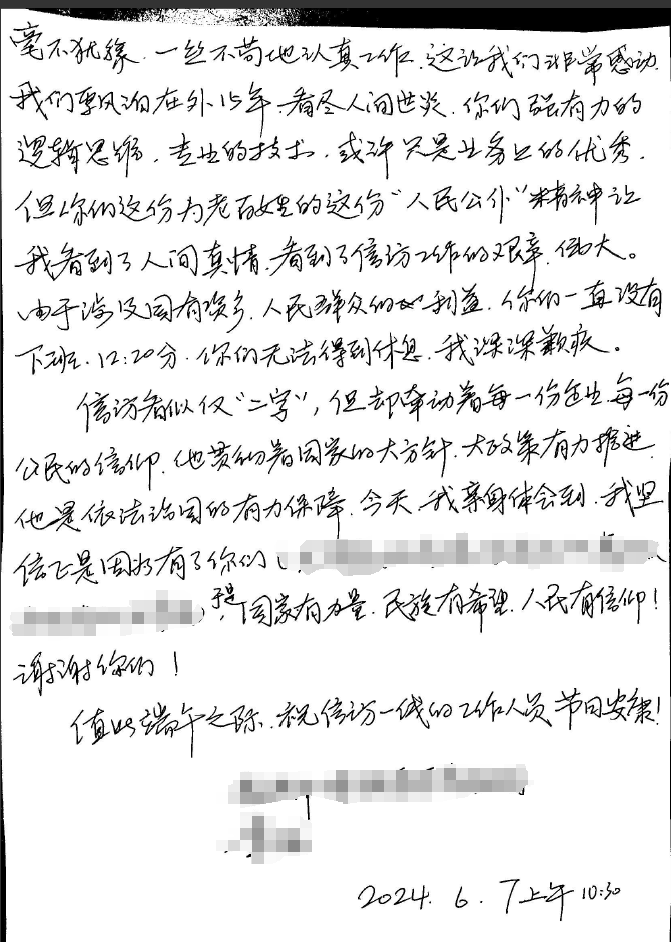 毫不犹豫、一丝不苟地认真工作,这让我们非常感动
我们漂泊在外15年,看尽人间世炎,你们强有力的
逻辑思维,专业的技术,或许只是业务上的优秀,
但你们这份为老百姓的这份“人民公仆”精神让
我看到了人间真情,看到了信访工作的艰辛、伟大。
由于涉及国有资产、人民群众的利益,你们一直没有
下班,12:20分,你们无法得到休息,我深深歉疚。
信访看似仅“二字”,但却牵动着每一份,每一份
公民的信仰,他贯彻着国家的大方针、大政策有力推进,
他是依法治国的有力保障,今天,我亲身体会到,我坚
信正是因为有了你们(
于是,国家有力量,民族有希望,人民有信仰!
谢谢你们!
值此端午之际,祝信访一线的工作人员节日安康!
2024. 6. 7上午10:30